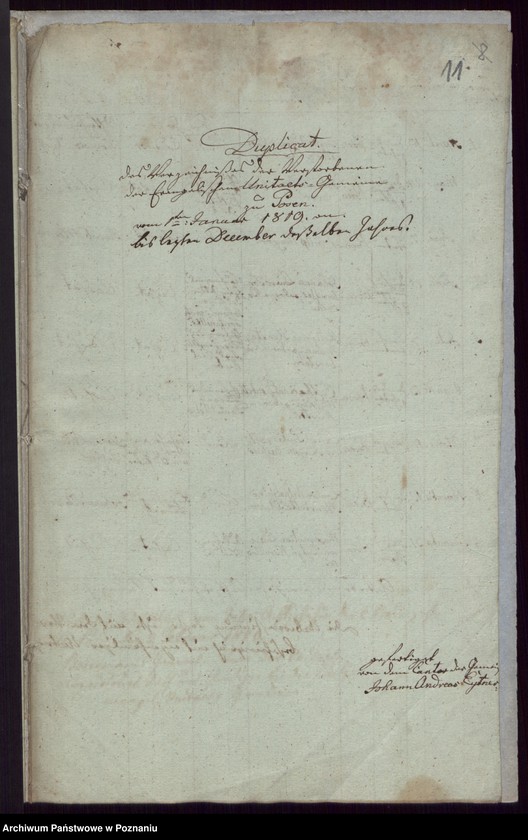 11. 8
Duplicat.
des Verzeichnißes der Verstorbenen
der Evangelischen Unitaets-Gemeine
zu Posen.
vom 1ten Januar 1819. an.
bis lezten December deßelben Jahres.
gefertiget
von dem Cantor der Gemei
Johann Andreas
Archiwum Państwowe w Poznaniu